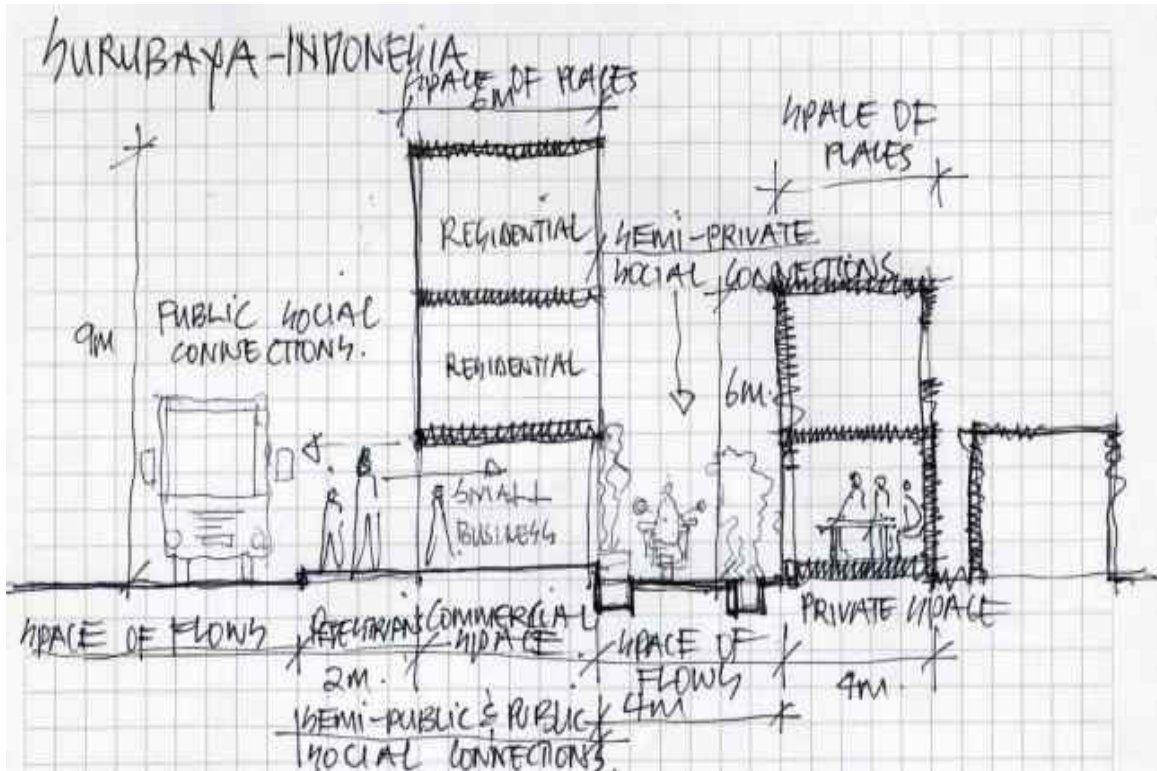 SURUBAYA-INDONESIA
SPACE OF PLACES
6M
SPACE OF
PLACES
RESIDENTIAL
SEMI-PRIVATE
SOCIAL CONNECTIONS
9M
PUBLIC SOCIAL
CONNECTIONS.
RESIDENTIAL
6M.
SMALL
BUSINESS
SPACE OF FLOWS
PEDESTRIANS
2M.
COMMERCIAL
SPACE.
SPACE OF
FLOWS
4M
PRIVATE SPACE
4M.
SEMI-PUBLIC & PUBLIC
SOCIAL CONNECTIONS.